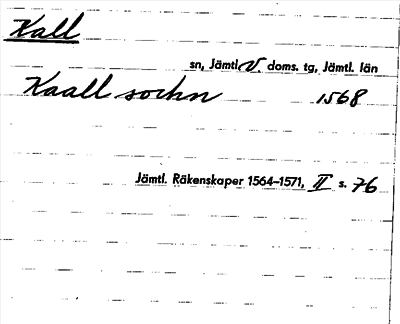 Kall
sn, Jämtl. V. doms. tg, Jämtl. län
Kaall sochn 1568
Jämtl. Räkenskaper 1564–1571, II s. 76